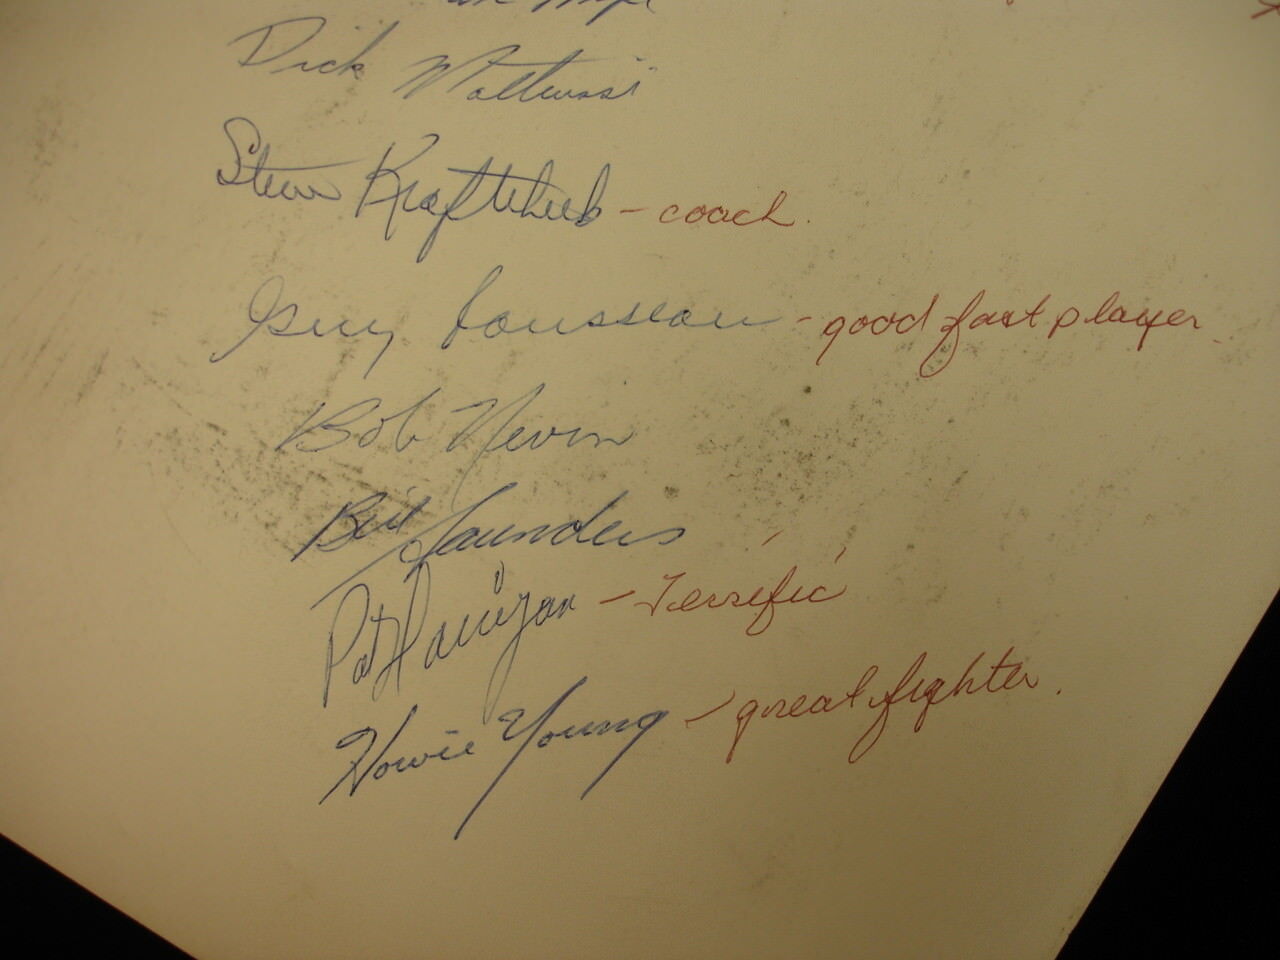 Dick Mattiussi
Steve Kraftcheck - coach.
Guy Rousseau - good fast player
Bob Nevin
Bill Saunders
Pat Hannigan - Terrific
Howie Young - great fighter.